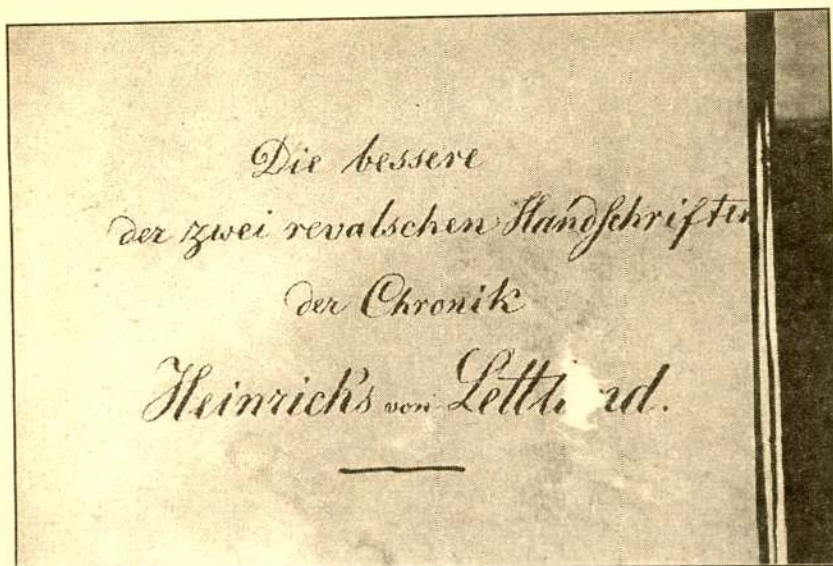 Die bessere
der zwei revalschen Handschriften
der Chronik
Heinrich's von Lettland.